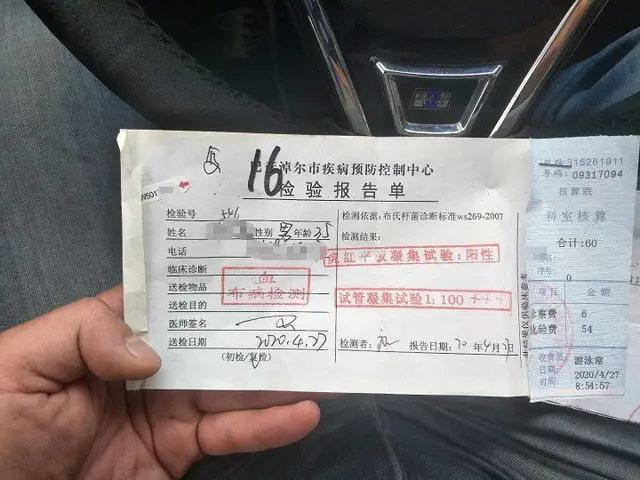 16
巴彦淖尔市疾病预防控制中心
检验报告单
检验号
姓名 性别 男 年龄 35
电话
临床诊断
送检物品 血
送检目的 布病检测
医师签名
送检日期 2020.4.27
(初检/复检)
检测依据:布氏杆菌诊断标准ws269-2007
检测结果:
虎红平板凝集试验:阳性
试管凝集试验1:100 +++
检测者: 报告日期:20年4月
315281911
号码:09317094
核算联
科室核算
合计:60
序号:
0
项目 金额
诊察费 6
化验费 54
收费员 游泳常
日期: 2020/4/27
时间: 8:54:57